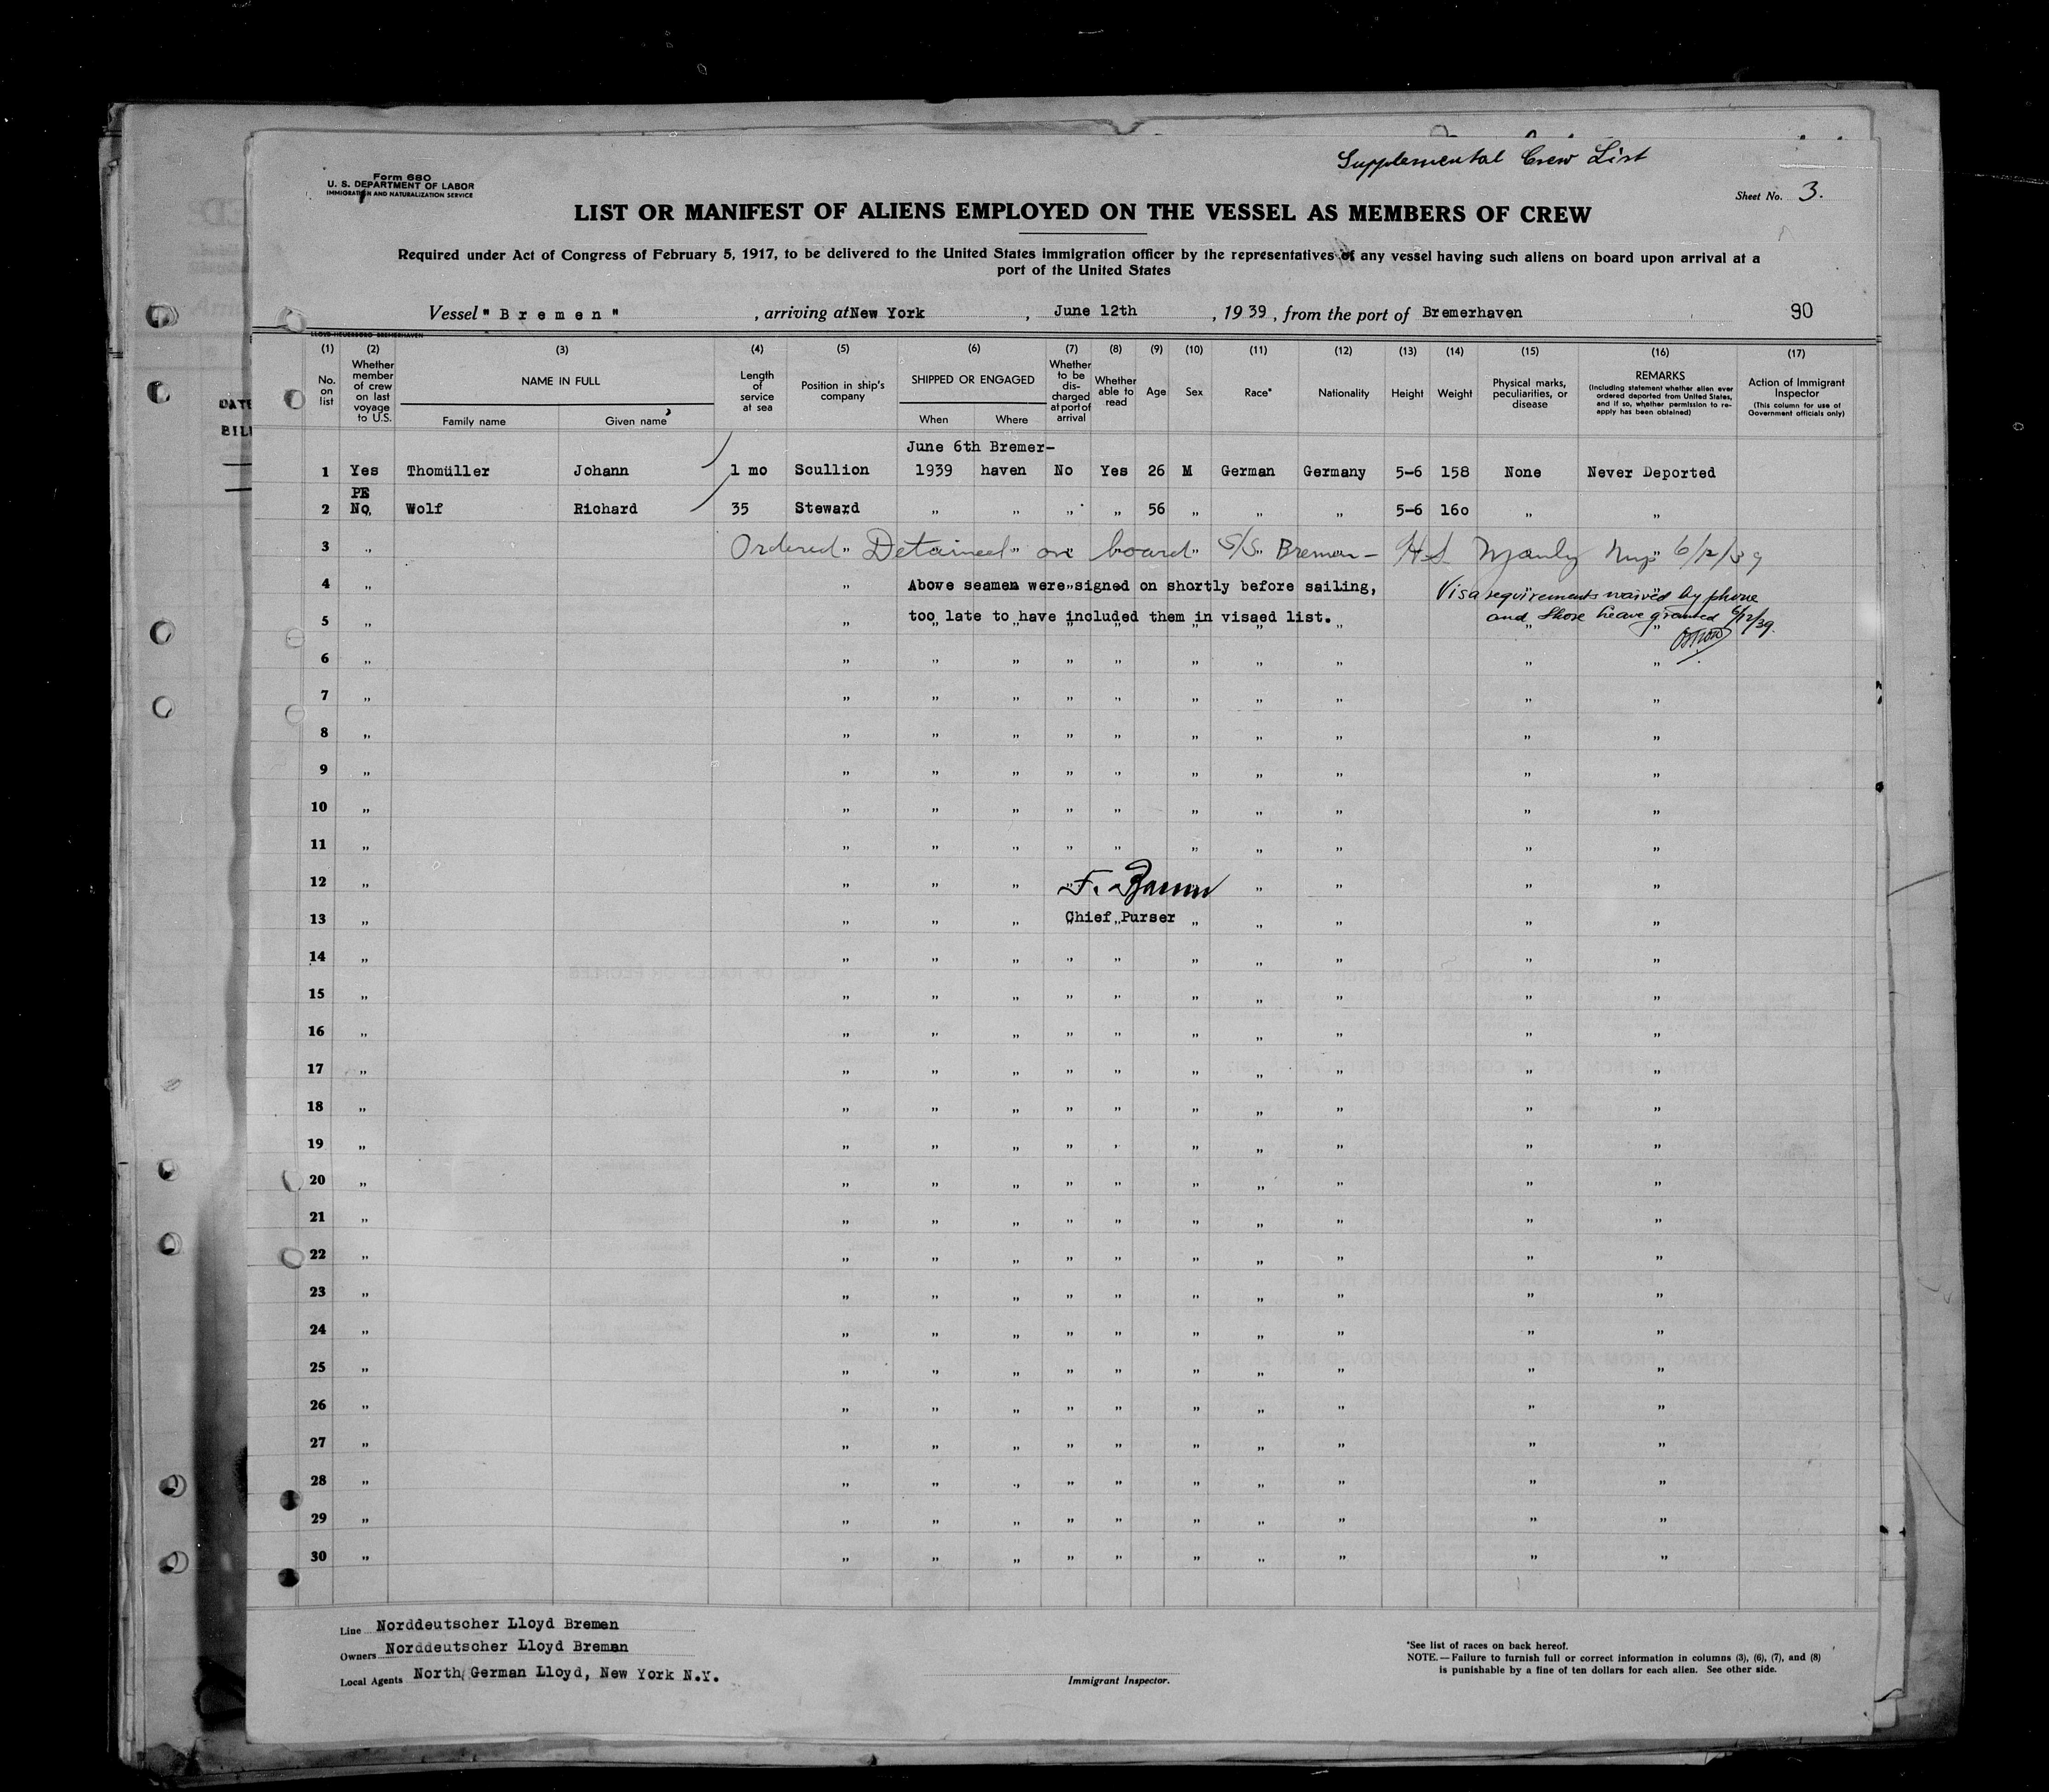 Supplemental Crew List
Form 680
U. S. DEPARTMENT OF LABOR
IMMIGRATION AND NATURALIZATION SERVICE
Sheet No. 3.
LIST OR MANIFEST OF ALIENS EMPLOYED ON THE VESSEL AS MEMBERS OF CREW
Required under Act of Congress of February 5, 1917, to be delivered to the United States immigration officer by the representatives of any vessel having such aliens on board upon arrival at a
port of the United States
Vessel "Bremen", arriving at New York, June 12th, 1939, from the port of Bremerhaven 90
LLOYD-HEUERBÜRO BREMERHAVEN
(1) (2) (3) (4) (5) (6) (7) (8) (9) (10) (11) (12) (13) (14) (15) (16) (17)
No. on list
Whether member of crew on last voyage to U.S.
NAME IN FULL
Family name
Given name
Length of service at sea
Position in ship's company
SHIPPED OR ENGAGED
When
Where
Whether to be discharged at port of arrival
Whether able to read
Age
Sex
Race*
Nationality
Height
Weight
Physical marks, peculiarities, or disease
REMARKS
(Including statement whether alien ever ordered deported from United States, and if so, whether permission to reapply has been obtained)
Action of Immigrant Inspector
(This column for use of Government officials only)
June 6th Bremer-
1 Yes Thomüller Johann 1 mo Scullion 1939 haven No Yes 26 M German Germany 5-6 158 None Never Deported
PE
2 No Wolf Richard 35 Steward " " " " 56 " " " 5-6 160 " "
3 " Ordered Detained on board S/S. Bremen - H.S. Manly 6/12/39
4 " " Above seamen were signed on shortly before sailing, Visa requirements waived by phone
5 " " too late to have included them in visaed list. and Shore leave granted 6/12/39.
6 " " " " " " " " " " "
7 " " " " " " " " " " "
8 " " " " " " " " " " "
9 " " " " " " " " " " "
10 " " " " " " " " " " "
11 " " " " " " " " " " "
12 " " " " F. " " " "
13 " " " " Chief Purser " " " " "
14 " " " " " " " " " " "
15 " " " " " " " " " " "
16 " " " " " " " " " " "
17 " " " " " " " " " " "
18 " " " " " " " " " " "
19 " " " " " " " " " " "
20 " " " " " " " " " " "
21 " " " " " " " " " " "
22 " " " " " " " " " " "
23 " " " " " " " " " " "
24 " " " " " " " " " " "
25 " " " " " " " " " " "
26 " " " " " " " " " " "
27 " " " " " " " " " " "
28 " " " " " " " " " " "
29 " " " " " " " " " " "
30 " " " " " " " " " " "
Line Norddeutscher Lloyd Bremen
Owners Norddeutscher Lloyd Bremen
Local Agents North German Lloyd, New York N.Y.
Immigrant Inspector.
*See list of races on back hereof.
NOTE.—Failure to furnish full or correct information in columns (3), (6), (7), and (8)
is punishable by a fine of ten dollars for each alien. See other side.